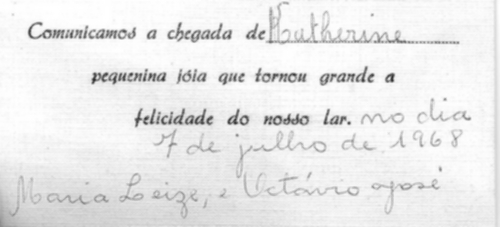 Comunicamos a chegada de Katherine
pequenina jóia que tornou grande a
felicidade do nosso lar. no dia
7 de julho de 1968
Maria Leize, e Octávio José